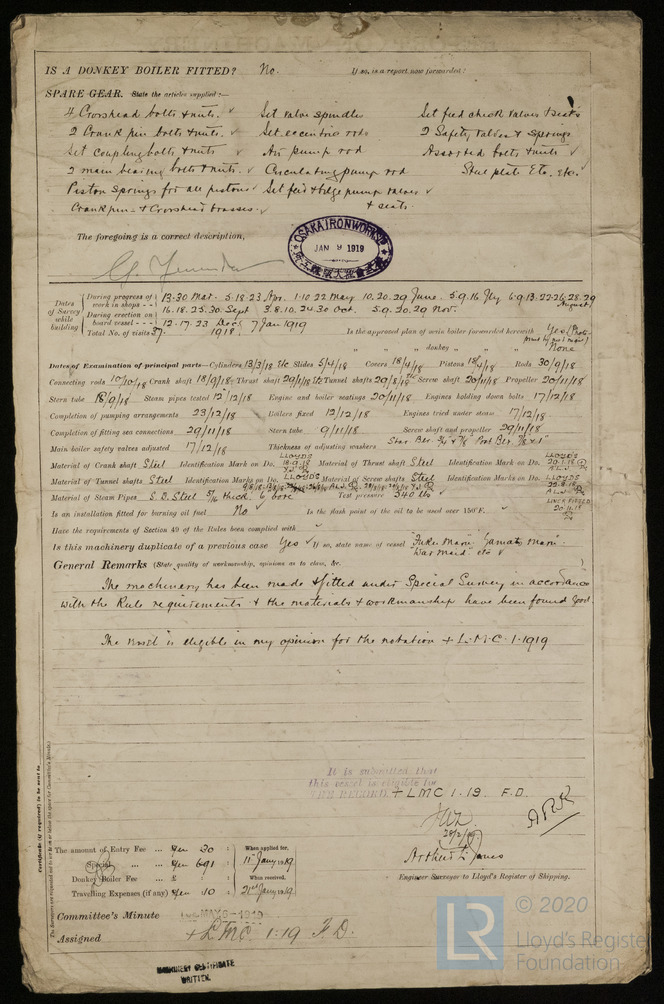 IS A DONKEY BOILER FITTED? No. If so, is a report now forwarded?
SPARE GEAR. State the articles supplied:—
4 Crosshead bolts & nuts. Set valve spindles Set feed check valves & seats
2 Crank pin bolts & nuts. Set eccentric rods 2 Safety valves & springs
Set coupling bolts & nuts Air pump rod Assorted bolts & nuts
2 main bearing bolts & nuts. Circulating pump rod Steel plate Etc. etc.
Piston springs for all pistons Set feed & bilge pump valves
Crank pins & Crosshead brasses. & seats.
The foregoing is a correct description,
OSAKA IRON WORKS LD
JAN 9 1919
Dates of Survey while building
During progress of work in shops - - 13.30 Mar. 5.18.23 Apr. 1.10.22 May. 10.20.29 June. 5.9.16 Jly 6.9.13.22.26.28.29 August,
During erection on board vessel - - - 16.18.25.30 Sept 3.8.10.24.30 Oct. 5.9.20.29 Nov.
12.17.23 Dec 1918. 7 Jan 1919
Total No. of visits 37. Is the approved plan of main boiler forwarded herewith Yes
" " " donkey " " " None
Dates of Examination of principal parts—Cylinders 13/3/18 etc Slides 5/4/18 Covers 18/4/18 Pistons 18/4/18 Rods 30/9/18
Connecting rods 10/10/18 Crank shaft 18/9/18 Thrust shaft 29/1/18 etc Tunnel shafts 29/8/18 etc Screw shaft 20/11/18 Propeller 20/11/18
Stern tube 18/9/18 Steam pipes tested 12/12/18 Engine and boiler seatings 20/11/18 Engines holding down bolts 17/12/18
Completion of pumping arrangements 23/12/18 Boilers fixed 12/12/18 Engines tried under steam 17/12/18
Completion of fitting sea connections 29/11/18 Stern tube 9/11/18 Screw shaft and propeller 29/11/18
Main boiler safety valves adjusted 17/12/18 Thickness of adjusting washers Star Ber. 3/4" & 7/8" Port Ber. 7/8 & 1"
Material of Crank shaft Steel Identification Mark on Do. LLOYDS 18.9.18 Material of Thrust shaft Steel Identification Mark on Do. LLOYDS 29.1.18
Material of Tunnel shafts Steel Identification Marks on Do. LLOYDS Material of Screw shafts Steel Identification Marks on Do. LLOYDS 22.8.18
Material of Steam Pipes S.D. Steel 5/16 thick 6" bore Test pressure 540 lbs LINER FITTED 20.11.18
Is an installation fitted for burning oil fuel No Is the flash point of the oil to be used over 150°F.
Have the requirements of Section 49 of the Rules been complied with
Is this machinery duplicate of a previous case Yes If so, state name of vessel "Fuku Maru" "Yamato Maru".
"War Maid" etc
General Remarks (State quality of workmanship, opinions as to class, &c.
The machinery has been made & fitted under Special Survey in accordance
with the Rule requirements & the materials & workmanship have been found good.
The vessel is eligible in my opinion for the notation + L.M.C. 1.1919
It is submitted that
this vessel is eligible for
THE RECORD + LMC 1.19. F.D.
28/2/19
Arthur L Jones
Engineer Surveyor to Lloyd's Register of Shipping.
The amount of Entry Fee ... Yen 30 : When applied for,
Special ... Yen 691 : 11th Jany 1919
Donkey Boiler Fee ... £ : When received,
Travelling Expenses (if any) Yen 10 : 21st Jany 1919
Committee's Minute MAY 6 - 1919
Assigned + LMC. 1.19 F.D.
MACHINERY CERTIFICATE
WRITTEN.
Certificate (if required) to be sent to
The Surveyors are requested not to write on or below the space for Committee's Minute.
LR © 2020
Lloyd's Register
Foundation